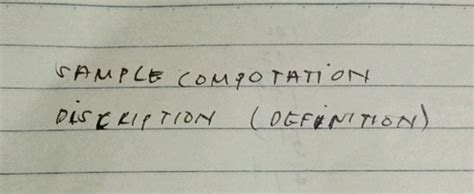 SAMPLE COMPOTATION
DISCRIPTION (DEFINITION)